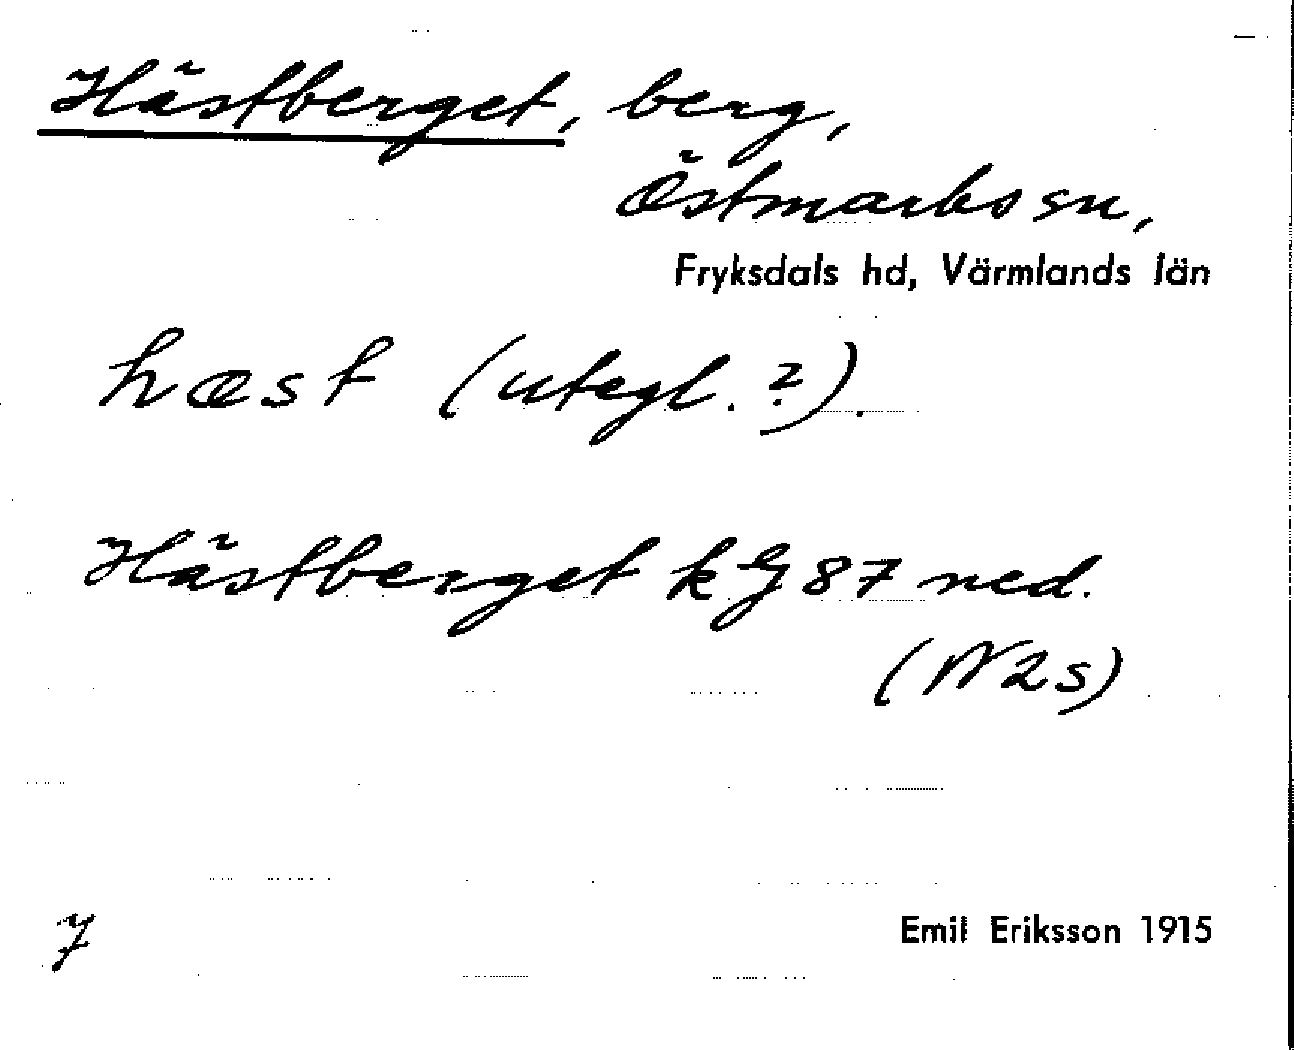 Hästberget, berg,
Östmarks sn,
Fryksdals hd, Värmlands län
hæst (utegl. ?).
Hästberget kg 87 ned.
(N2s)
7
Emil Eriksson 1915